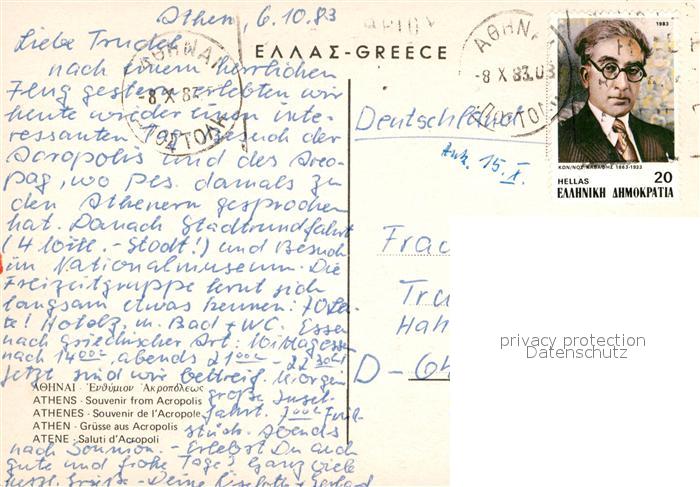 Athen, 6.10.83
Liebe Trudel,
nach einem herrlichen
Flug gestern erlebten wir
heute wieder einen inte-
ressanten Tag. Besuch der
Acropolis und des Areo-
pag, wo damals zu
den Athenern gesprochen
hat. Danach Stadtrundfahrt
(4 Mill.-Stadt!) und Besuch
im Nationalmuseum. Die
Freizeitgruppe lernt sich
langsam etwas kennen: 70
Hotelz. m. Bad + WC. Essen
nach griechischer Art: Mittagessen
nach 14⁰⁰, abends 21⁰⁰ - 22³⁰
Jetzt sind wir bettreif. Morgen
große Insel-
fahrt. 7⁰⁰ Früh-
stück. Abends
nach Sounion. - Erlebst Du auch
gute und frohe Tage? Ganz viele
herzl. Grüße - Deine
ΑΘΗΝΑΙ · Ἐνθύμιον Ἀκροπόλεως
ATHENS · Souvenir from Acropolis
ATHENES · Souvenir de l'Acropole
ATHEN · Grüsse aus Acropolis
ATENE · Saluti d'Acropoli
ΕΛΛΑΣ-GREECE
ΑΘΗΝΑΙ
-8 X 83
ΑΘΗΝΑΙ
-8 X 83.03
1983
ΚΩΝ/ΝΟΣ ΚΑΒΑΦΗΣ 1863-1933
HELLAS 20
ΕΛΛΗΝΙΚΗ ΔΗΜΟΚΡΑΤΙΑ
Deutschland
Ank. 15. X.
Frau
Tru
Hah
D-6
privacy protection
Datenschutz